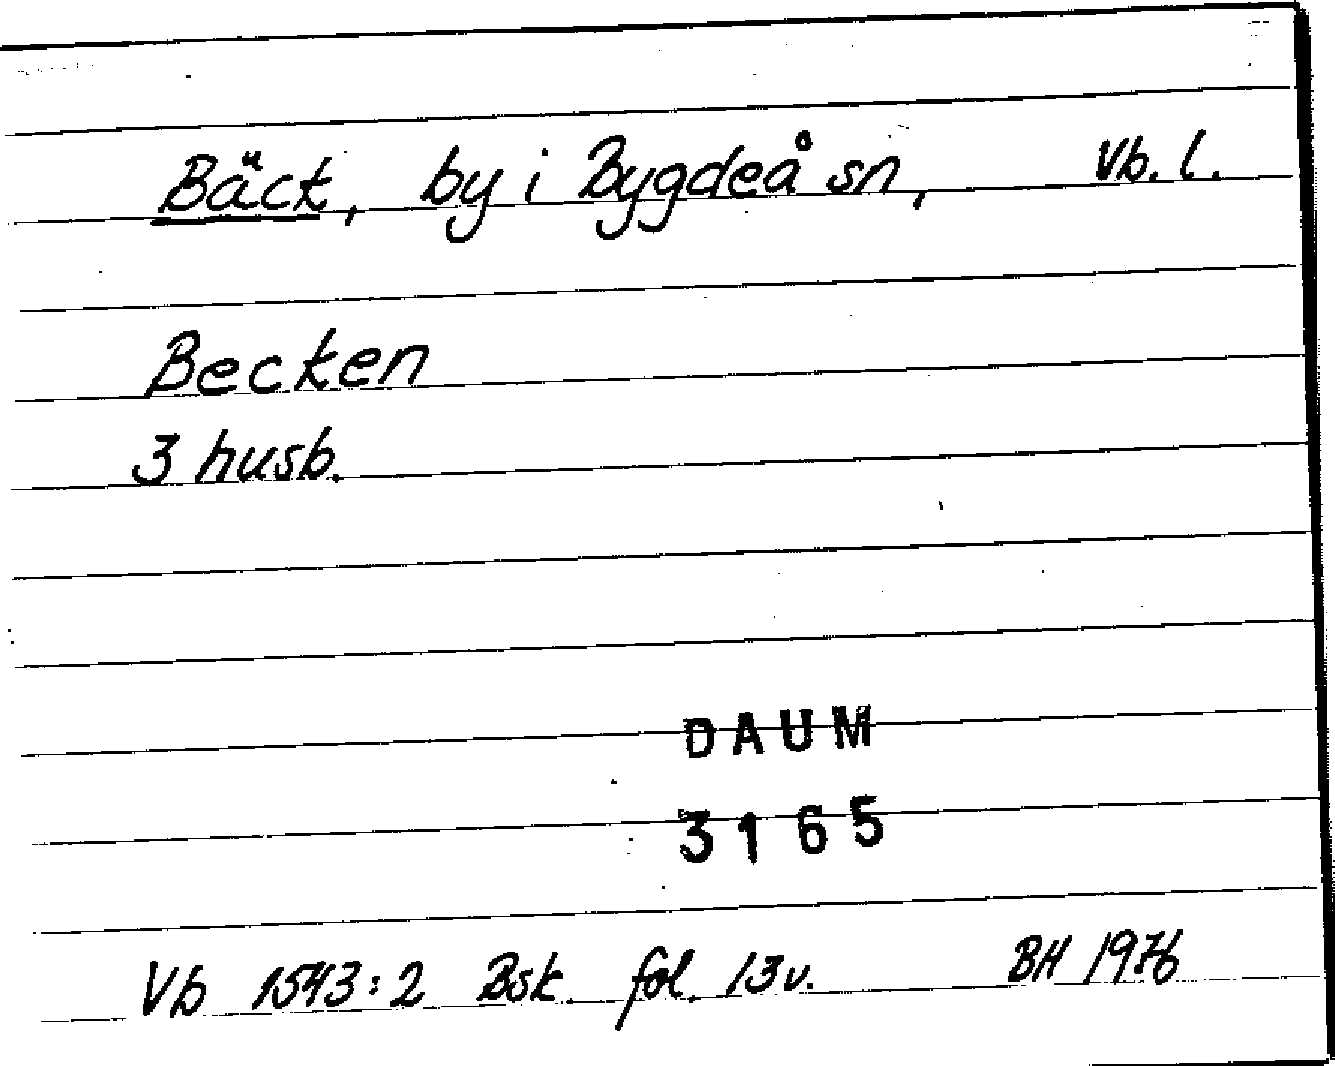 Bäck, by i Bygdeå sn, Vb. l.
Becken
3 husb.
DAUM
3165
Vb 1543:2 Bsk. fol. 13v. BH 1976